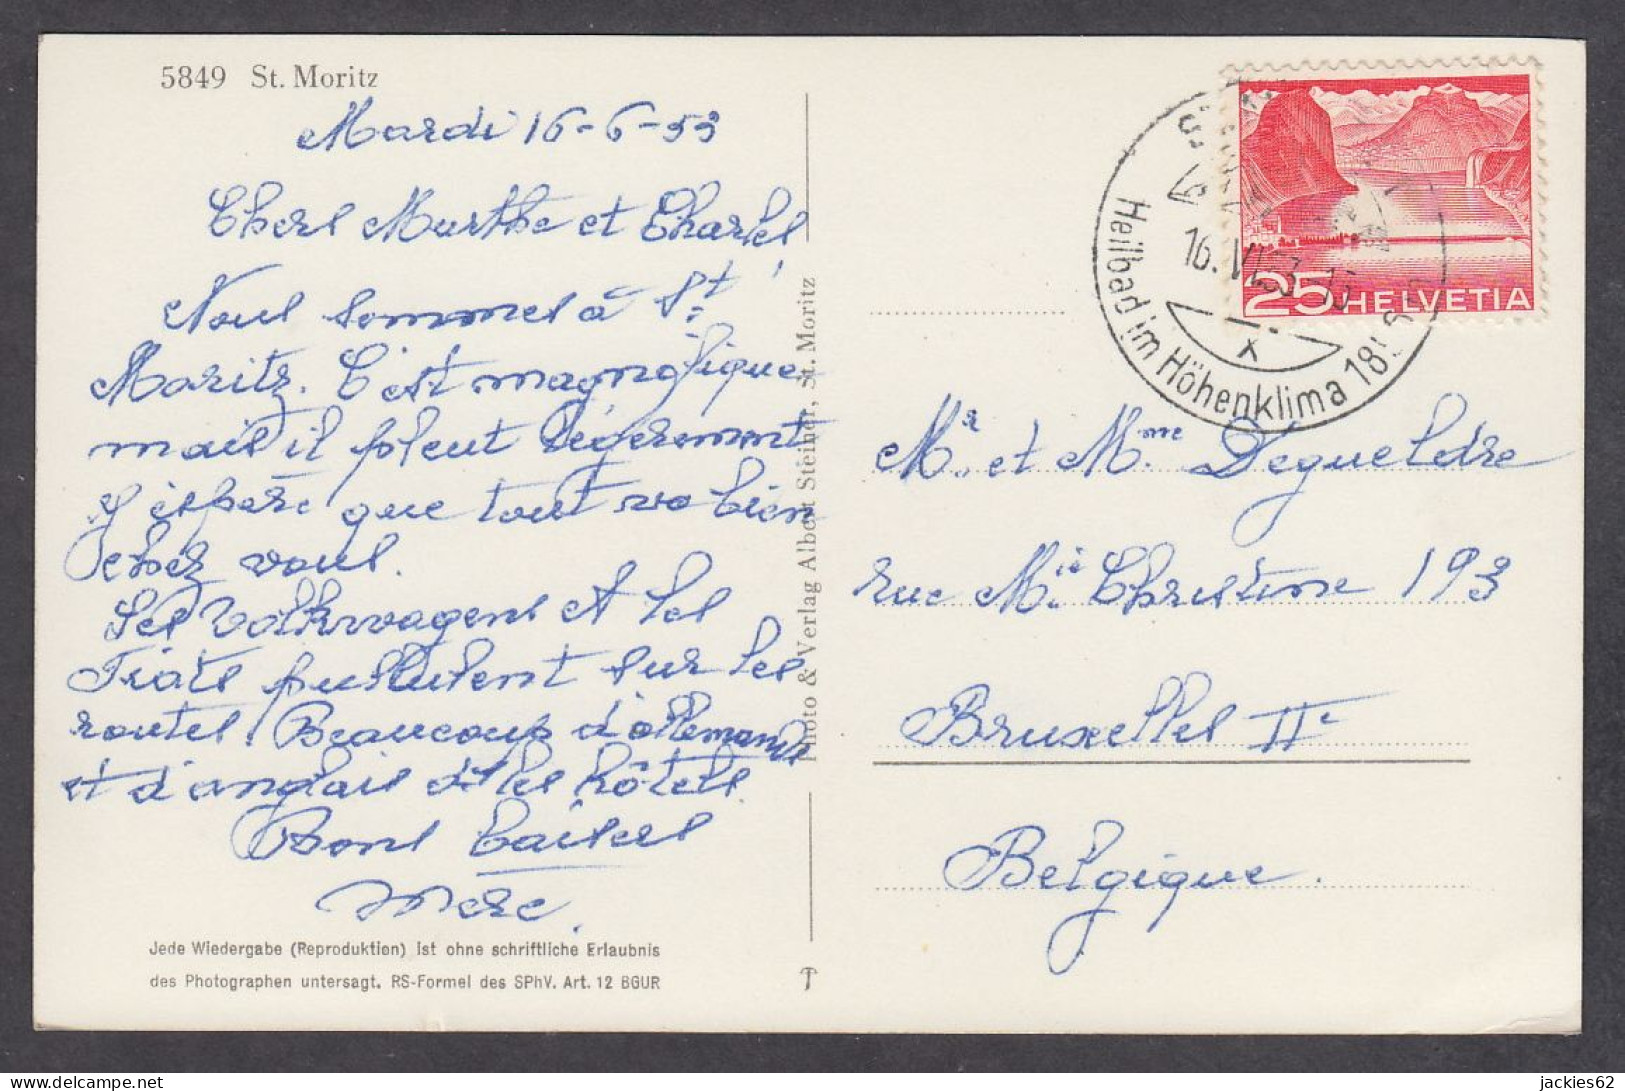 5849 St. Moritz
Mardi 16-6-53
Chers Marthe et Charles,
Nous sommes à St.
Moritz. C'est magnifique
mais il pleut légèrement
J'espère que tout va bien
chez vous.
Les Volkswagens et les
Fiats pullulent sur les
routes. Beaucoup d'allemands
et d'anglais ds les hôtels.
Bons baisers
Jede Wiedergabe (Reproduktion) ist ohne schriftliche Erlaubnis
des Photographen untersagt. RS-Formel des SPhV. Art. 12 BGUR
Photo & Verlag Albert Steiner, St. Moritz
16. VI. 53-
Heilbad im Höhenklima 18
X
25 HELVETIA
Mr. et Mme Degueldre
rue Mie Christine 193
Bruxelles II
Belgique.
jackies62